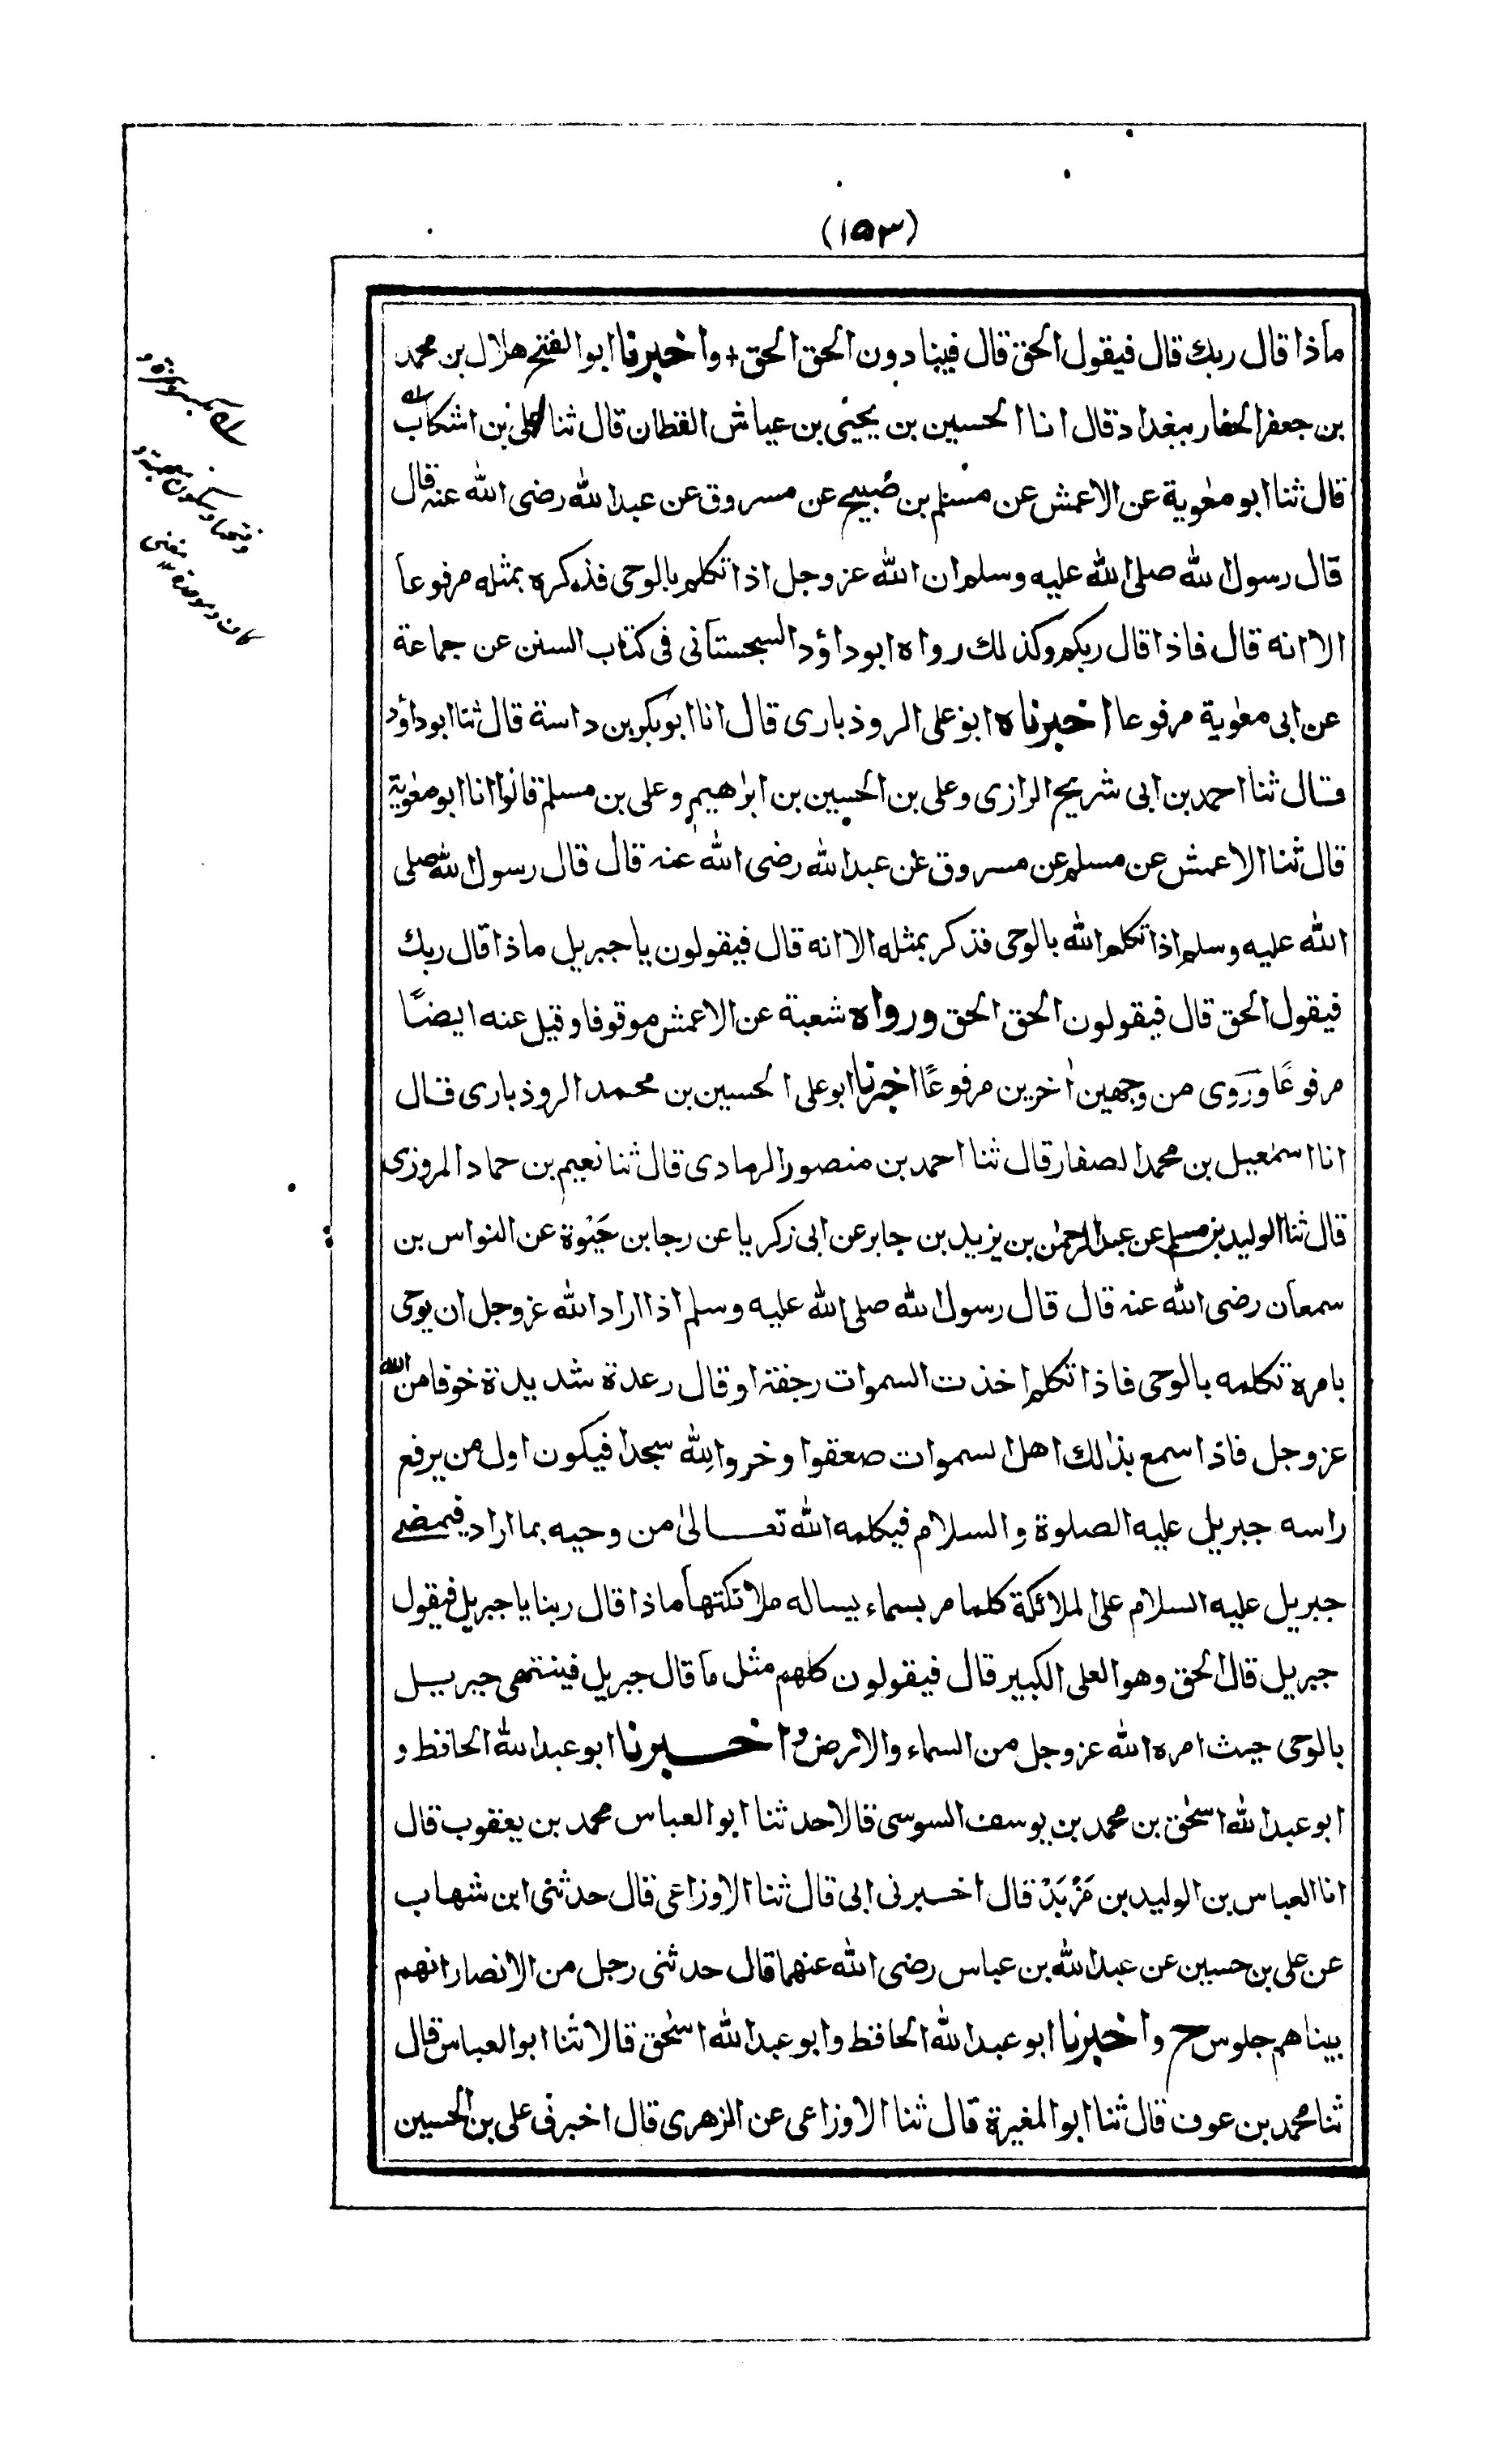 (١٥٣)
ماذا قال ربك قال فيقول الحق قال فينادون الحق الحق + واخبرنا ابو الفتح هلال بن محمد
بن جعفر الحفار ببغداد قال انا الحسين بن يحيى بن عياش القطان قال ثنا على بن اشكاب
قال ثنا ابو معٰوية عن الاعمش عن مسلم بن صُبيح عن مسروق عن عبد الله رضى الله عنه قال
قال رسول الله صلى الله عليه وسلم ان الله عز وجل اذا تكلم بالوحى فذكره بمثله مرفوعا
الا انه قال فاذا قال ربكم وكذلك رواه ابو داؤد السجستانى فى كتاب السنن عن جماعة
عن ابى معٰوية مرفوعا اخبرناه ابو على الروذبارى قال انا ابو بكر بن داسة قال ثنا ابو داؤد
قال ثنا احمد بن ابى شريح الرازى وعلى بن الحسين بن ابراهيم وعلى بن مسلم قالوا انا ابو معٰوية
قال ثنا الاعمش عن مسلم عن مسروق عن عبد الله رضى الله عنه قال قال رسول الله صلى
الله عليه وسلم اذا تكلم الله بالوحى فذكر بمثله الا انه قال فيقولون يا جبريل ماذا قال ربك
فيقول الحق قال فيقولون الحق الحق ورواه شعبة عن الاعمش موقوفا وقيل عنه ايضًا
مرفوعًا وروى من وجهين اٰخرين مرفوعًا اخبرنا ابو على الحسين بن محمد الروذبارى قال
انا اسمٰعيل بن محمد الصفار قال ثنا احمد بن منصور الرمادى قال ثنا نعيم بن حماد المروزى
قال ثنا الوليد بن مسلم عن عبد الرحمٰن بن يزيد بن جابر عن ابى زكريا عن رجا بن حَيْوة عن النواس بن
سمعان رضى الله عنه قال قال رسول الله صلى الله عليه وسلم اذا اراد الله عز وجل ان يوحى
بامره تكلمه بالوحى فاذا تكلم اخذت السموات رجفة او قال رعدة شديدة خوفا من الله
عز وجل فاذا سمع بذٰلك اهل السموات صعقوا وخروا لله سجدا فيكون اول من يرفع
راسه جبريل عليه الصلوة والسلام فيكلمه الله تعالىٰ من وحيه بما اراد فيمضى
جبريل عليه السلام على الملائكة كلما مر بسماء يساله ملائكتها ماذا قال ربنا يا جبريل فيقول
جبريل قال الحق وهو العلى الكبير قال فيقولون كلهم مثل ما قال جبريل فينتهى جبريل
بالوحى حيث امره الله عز وجل من السماء والارض واخبرنا ابو عبد الله الحافظ و
ابو عبد الله اسحٰق بن محمد بن يوسف السوسى قالا حدثنا ابو العباس محمد بن يعقوب قال
انا العباس بن الوليد بن مَزْيَدْ قال اخبرنى ابى قال ثنا الاوزاعى قال حدثنى ابن شهاب
عن على بن حسين عن عبد الله بن عباس رضى الله عنهما قال حدثنى رجل من الانصار انهم
بيناهم جلوس ح واخبرنا ابو عبد الله الحافظ وابو عبد الله اسحٰق قالا ثنا ابو العباس قال
ثنا محمد بن عوف قال ثنا ابو المغيرة قال ثنا الاوزاعى عن الزهرى قال اخبرنى على بن الحسين